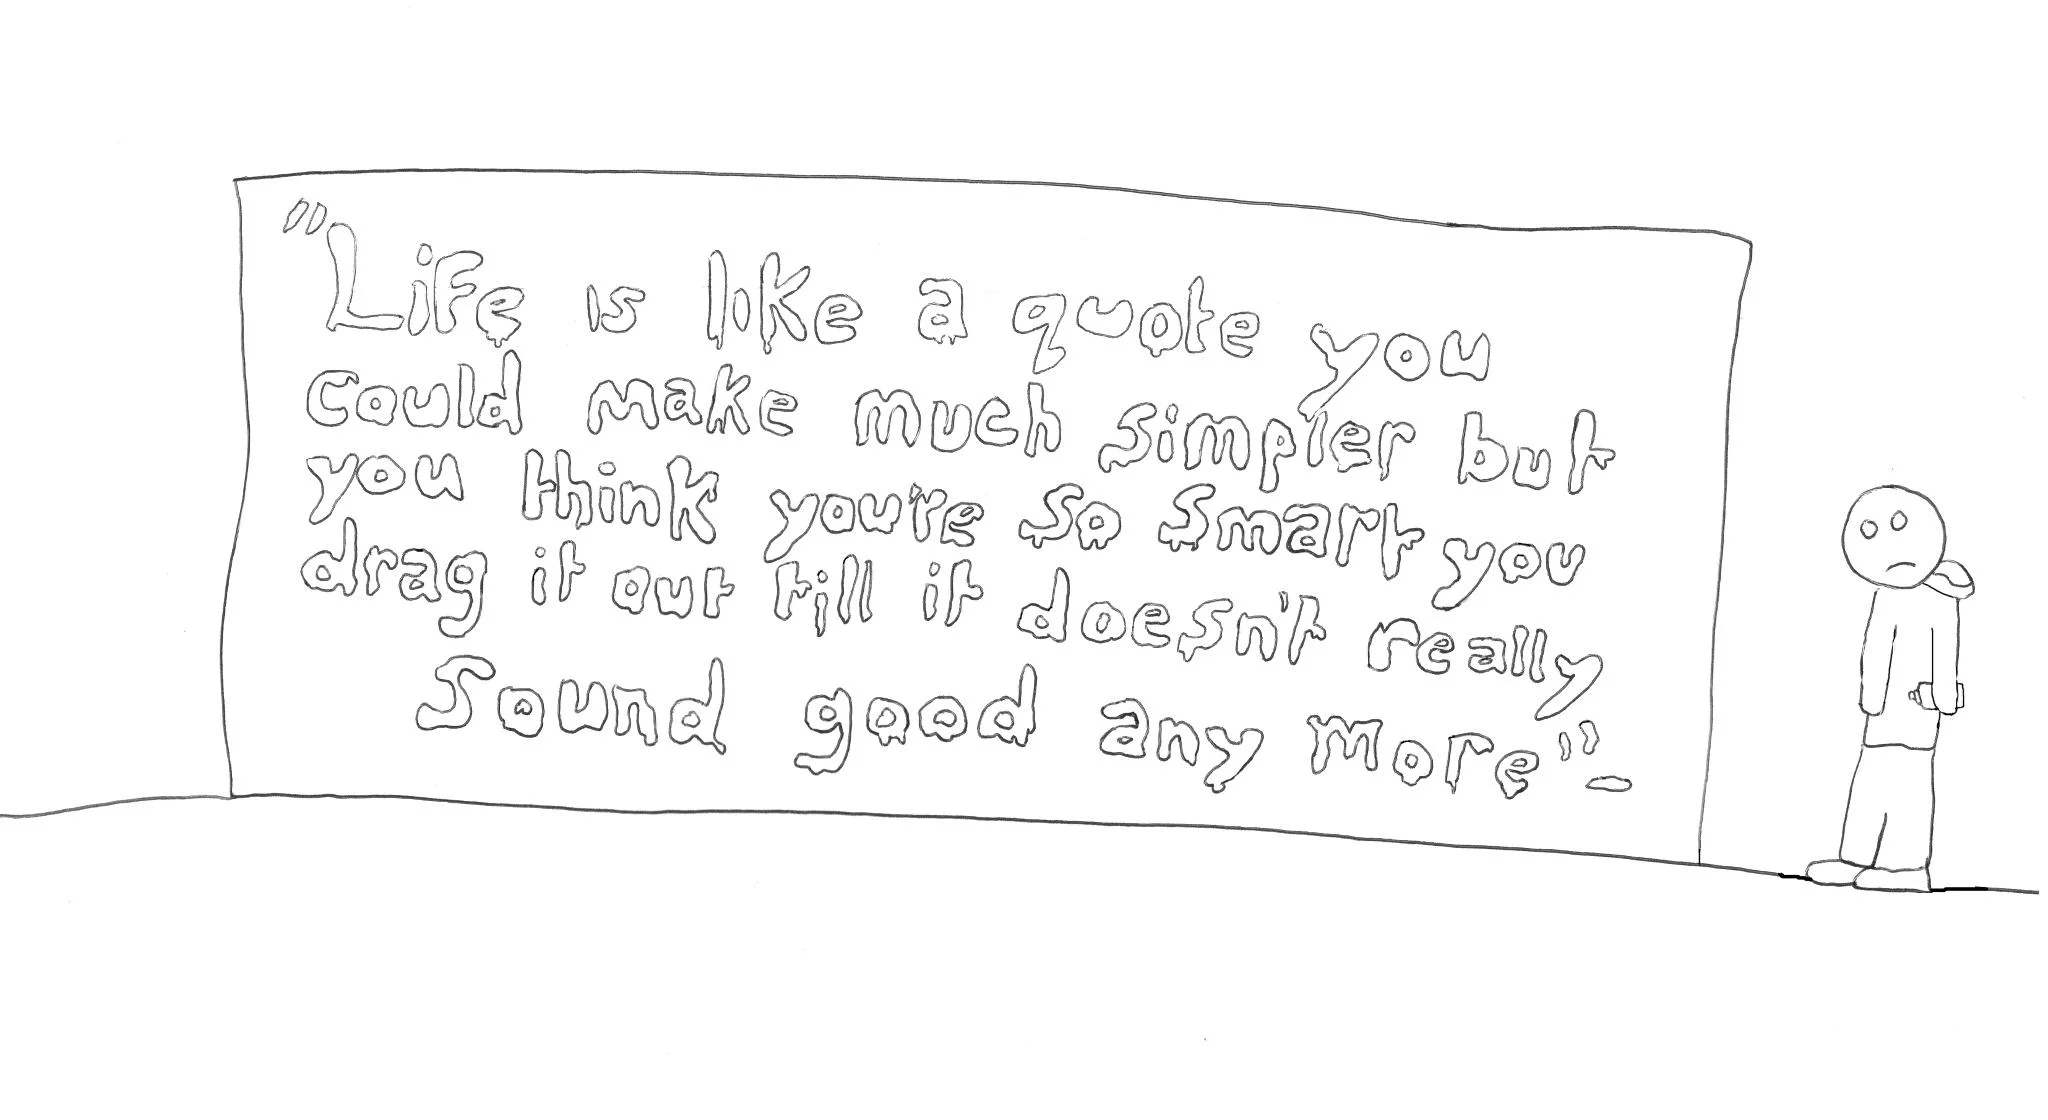 "Life is like a quote you
could make much simpler but
you think you're so smart you
drag it out till it doesn't really
sound good any more"-